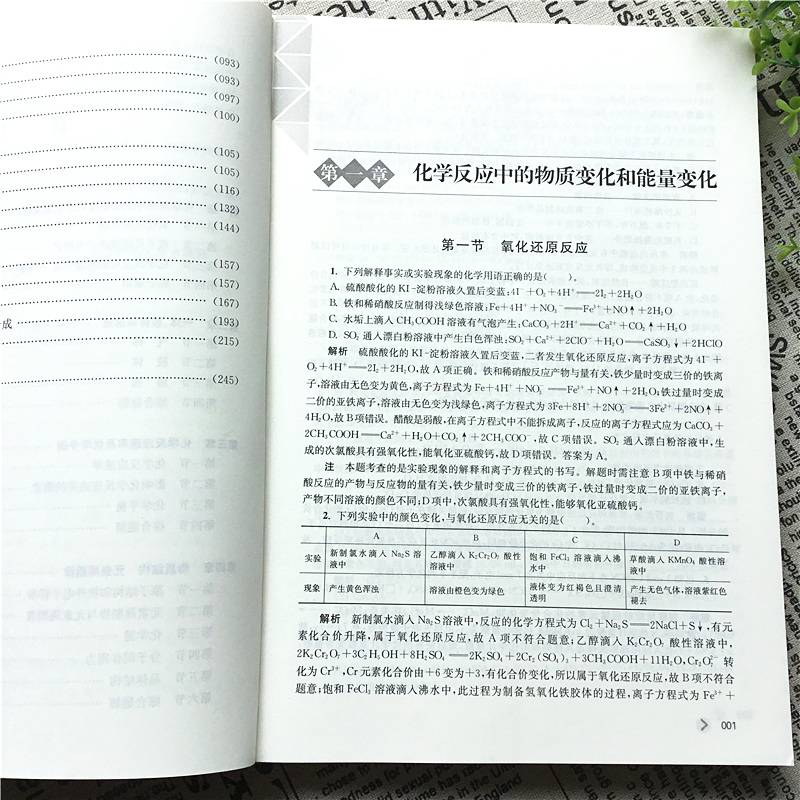 (093)
(093)
(097)
(100)
(105)
(105)
(116)
(132)
(144)
(157)
(157)
(167)
成 (193)
(215)
(245)
第一章 化学反应中的物质变化和能量变化
第一节 氧化还原反应
1. 下列解释事实或实验现象的化学用语正确的是( )。
A. 硫酸酸化的 KI-淀粉溶液久置后变蓝:4I⁻+O₂+4H⁺══2I₂+2H₂O
B. 铁和稀硝酸反应制得浅绿色溶液:Fe+4H⁺+NO₃⁻══Fe³⁺+NO↑+2H₂O
C. 水垢上滴入 CH₃COOH 溶液有气泡产生:CaCO₃+2H⁺══Ca²⁺+CO₂↑+H₂O
D. SO₂ 通入漂白粉溶液中产生白色浑浊:SO₂+Ca²⁺+2ClO⁻+H₂O══CaSO₃↓+2HClO
解析 硫酸酸化的 KI-淀粉溶液久置后变蓝,二者发生氧化还原反应,离子方程式为 4I⁻+
O₂+4H⁺══2I₂+2H₂O,故 A 项正确。铁和稀硝酸反应产物与量有关,铁少量时变成三价的铁离
子,溶液由无色变为黄色,离子方程式为 Fe+4H⁺+NO₃⁻══Fe³⁺+NO↑+2H₂O;铁过量时变成
二价的亚铁离子,溶液由无色变为浅绿色,离子方程式为 3Fe+8H⁺+2NO₃⁻══3Fe²⁺+2NO↑+
4H₂O,故 B 项错误。醋酸是弱酸,在离子方程式中不能拆成离子,反应的离子方程式应为 CaCO₃+
2CH₃COOH══Ca²⁺+H₂O+CO₂↑+2CH₃COO⁻,故 C 项错误。SO₂ 通入漂白粉溶液中,生
成的次氯酸具有强氧化性,能氧化亚硫酸钙,故 D 项错误。答案为 A。
注 本题考查的是实验现象的解释和离子方程式的书写。解题时需注意 B 项中铁与稀硝
酸反应的产物与反应物的量有关,铁少量时变成三价的铁离子,铁过量时变成二价的亚铁离子,
产物不同溶液的颜色不同;D 项中,次氯酸具有强氧化性,能够氧化亚硫酸钙。
2. 下列实验中的颜色变化,与氧化还原反应无关的是( )。
A B C D
实验 新制氯水滴入 Na₂S 溶液中 乙醇滴入 K₂Cr₂O₇ 酸性溶液中 饱和 FeCl₃ 溶液滴入沸水中 草酸滴入 KMnO₄ 酸性溶液中
现象 产生黄色浑浊 溶液由橙色变为绿色 液体变为红褐色且澄清透明 产生无色气体,溶液紫红色褪去
解析 新制氯水滴入 Na₂S 溶液中,反应的化学方程式为 Cl₂+Na₂S══2NaCl+S↓,有元
素化合价升降,属于氧化还原反应,故 A 项不符合题意;乙醇滴入 K₂Cr₂O₇ 酸性溶液中,
2K₂Cr₂O₇+3C₂H₅OH+8H₂SO₄══2K₂SO₄+2Cr₂(SO₄)₃+3CH₃COOH+11H₂O,Cr₂O₇²⁻ 转
化为 Cr³⁺,Cr 元素化合价由+6 变为+3,有化合价变化,所以属于氧化还原反应,故 B 项不符合
题意;饱和 FeCl₃ 溶液滴入沸水中,此过程为制备氢氧化铁胶体的过程,离子方程式为 Fe³⁺+
001